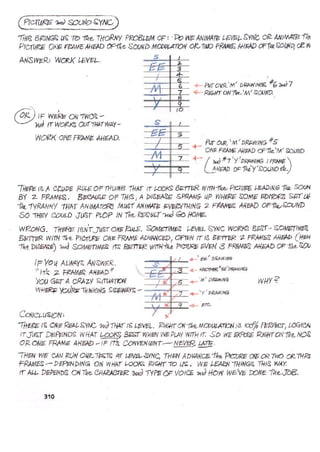 PICTURE and SOUND SYNC
THIS BRINGS US TO THE THORNY PROBLEM OF: DO WE ANIMATE LEVEL SYNC OR ANIMATE The
PICTURE ONE FRAME AHEAD OF the SOUND MODULATION OR TWO FRAMES AHEAD OF the SOUND, OR
ANSWER: WORK LEVEL.
S 1
EE 2
3
4
I 5
M 6
7
Y 8
9
10
PUT OUR 'M' DRAWINGS #6 and 7
RIGHT ON the 'M' SOUND.
OR IF WE'RE ON TWOS -
and IT WORKS OUT THAT WAY -
WORK ONE FRAME AHEAD.
S 1
EE 3
I 5
M 7
Y 9
PUT OUR 'M' DRAWING #5
ONE FRAME AHEAD OF The 'M' SOUND
(and #7 'Y' DRAWING 1 FRAME
AHEAD OF The 'Y' SOUND etc.)
THERE IS A CRUDE RULE OF THUMB THAT IT LOOKS BETTER WITH the PICTURE LEADING the SOUN
BY 2 FRAMES. BECAUSE OF THIS, A DISEASE SPRANG UP WHERE SOME EDITORS SET UP
the TYRANNY THAT ANIMATORS MUST ANIMATE EVERYTHING 2 FRAMES AHEAD OF the SOUND
SO THEY COULD JUST PLOP IN the RESULT and GO HOME.
WRONG. THERE ISN'T JUST ONE RULE. SOMETIMES LEVEL SYNC WORKS BEST - SOMETIMES
BETTER WITH the PICTURE ONE FRAME ADVANCED, OFTEN IT IS BETTER 2 FRAMES AHEAD (HEN
the DISEASE) and SOMETIMES ITS BETTER WITH the PICTURE EVEN 3 FRAMES AHEAD OF the SOU
IF YOU ALWAYS ANSWER,
"It's 2 FRAMES AHEAD"
YOU GET A CRAZY SITUATION
WHERE YOU'RE THINKING SIDEWAYS -
S 1
EE 3
I 5
M 7
Y 9
'EE' DRAWING
ANOTHER 'EE' DRAWING
'M' DRAWING
'Y' DRAWING
ETC.
WHY?
CONCLUSION:
THERE IS ONE REAL SYNC and THAT IS LEVEL. RIGHT ON the MODULATION IS 100% PERFECT, LOGICAL
IT JUST DEPENDS WHAT LOOKS BEST WHEN WE PLAY WITH IT. SO WE EXPOSE RIGHT ON the NOS
OR ONE FRAME AHEAD - IF IT'S CONVENIENT - NEVER LATE.
THEN WE CAN RUN OUR TESTS AT LEVEL SYNC, THEN ADVANCE the PICTURE ONE OR TWO OR THRE
FRAMES - DEPENDING ON WHAT LOOKS RIGHT TO US. WE LEARN THINGS THIS WAY.
IT ALL DEPENDS ON The CHARACTER and TYPE OF VOICE and HOW WE'VE DONE The JOB.
310